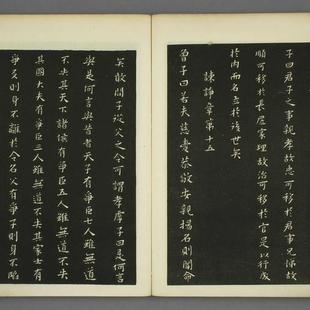 子曰君子之事親孝故忠可移於君事兄悌故
順可移於長居家理故治可移於官是以行成
於內而名立於後世矣
諫諍章第十五
曾子曰若夫慈愛恭敬安親揚名則聞命
矣敢問子從父之令可謂孝虖子曰是何言
與是何言與昔者天子有爭臣七人雖無道
不失其天下諸侯有爭臣五人雖無道不失
其國大夫有爭臣三人雖無道不失其家士有
爭友則身不離於令名父有爭子則身不陷